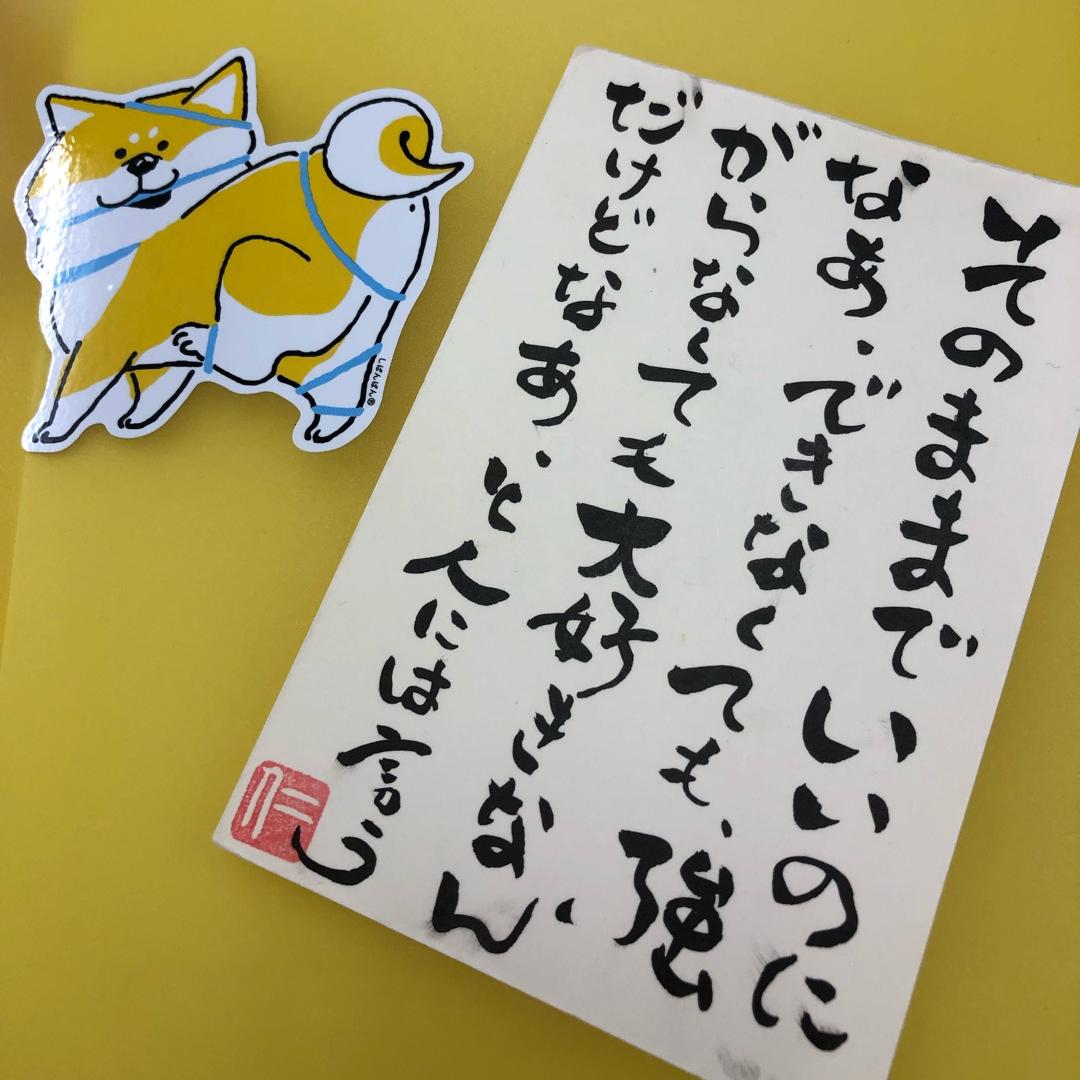 そのままでいいのに
なあ、できなくても、強
がらなくても大好きなん
だけどなあ、と人には言う
仁
しばんばん®